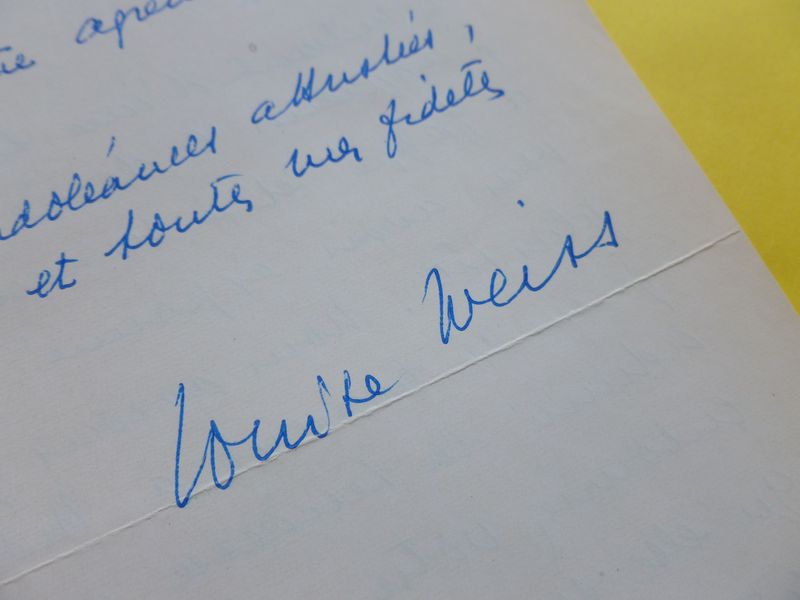 agré
doléances attristées,
et toutes mes fidelités
Louise Weiss